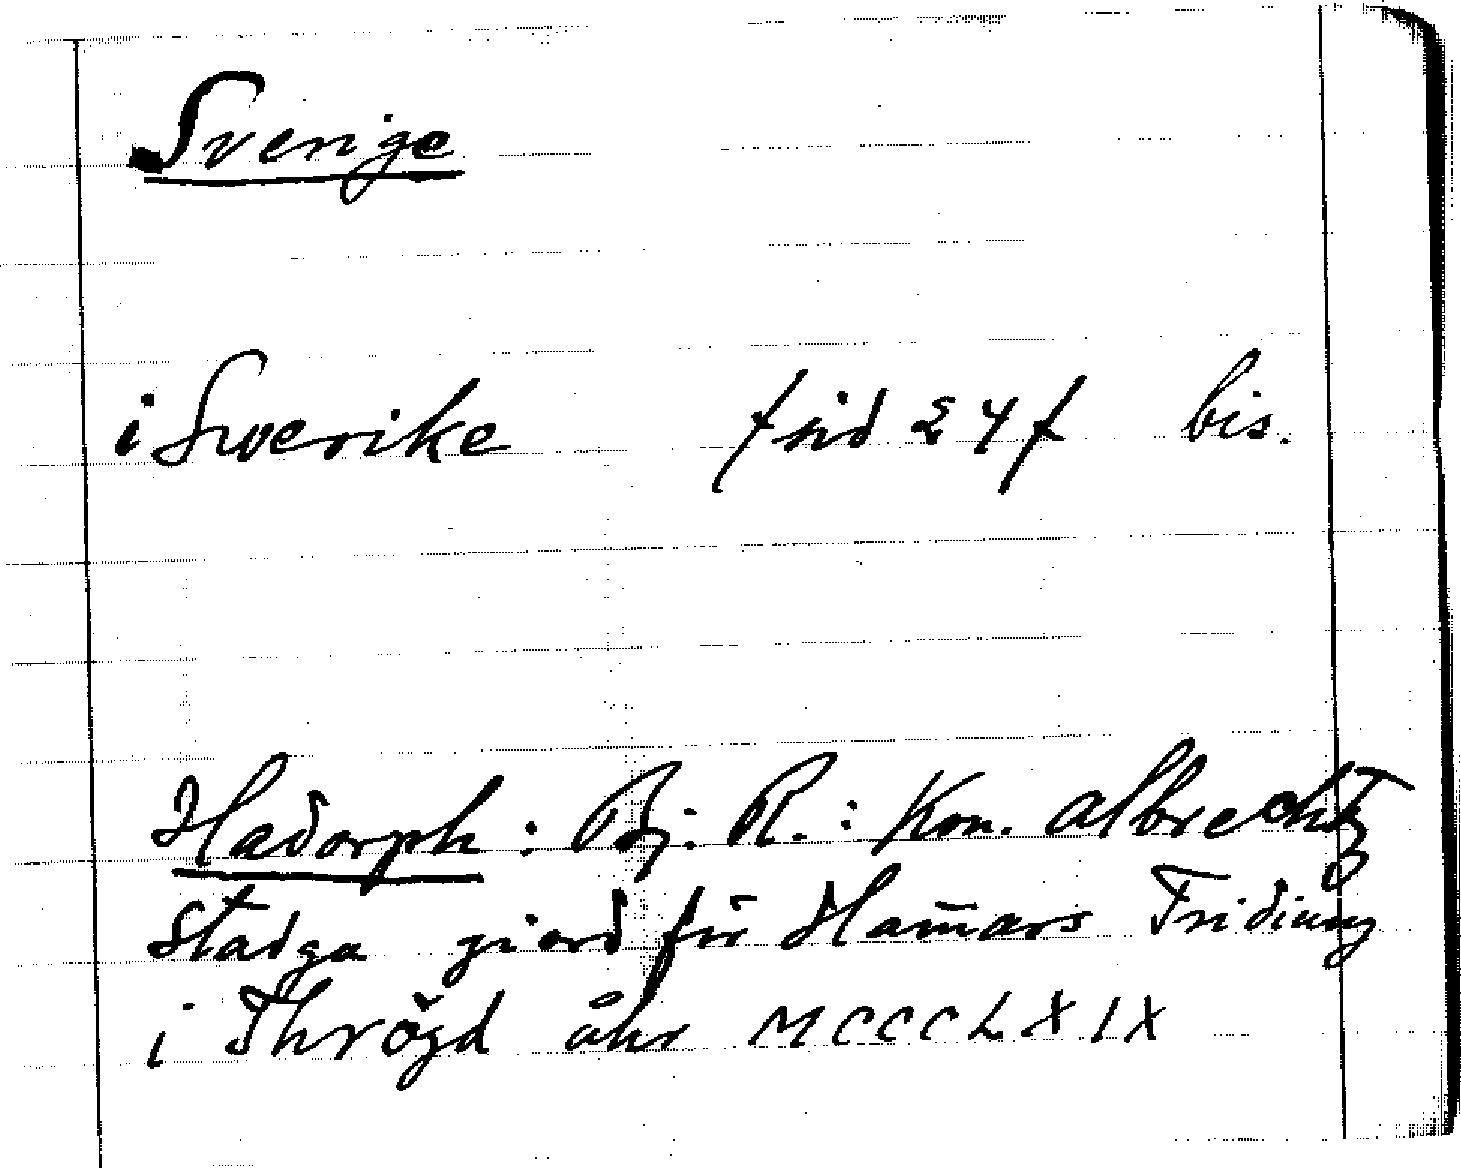 Sverige
i Swerike / sid 24 / bis.
Hadorph : Bj. R. : Kon. Albrechtz
Stadga giord förHam̄ars Tridiung
i Thrögd åhr MCCCLXIX